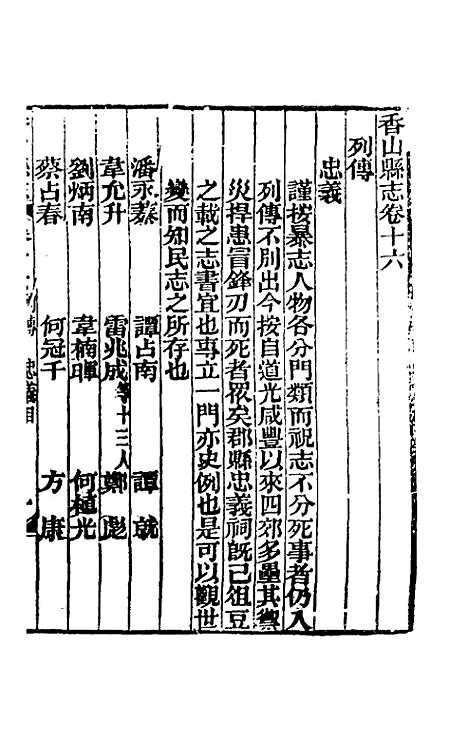 香山縣志卷十六
列傳
忠義
謹按暴志人物各分門類而祝志不分死事者仍入
列傳不別出今按自道光咸豐以來四郊多壘其禦
災捍患冒鋒刃而死者眾矣郡縣忠義祠既已俎豆
之載之志書宜也專立一門亦史例也是可以觀世
變而知民志之所存也
潘永蓁 譚占南 譚就
韋允升 雷兆成等十三人 鄭彪
劉炳南 韋楠暉 何植光
蔡占春 何冠千 方康